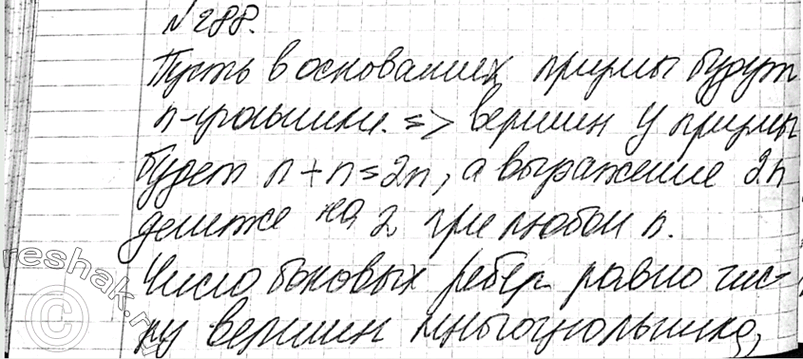 №288.
Пусть в основаниях призмы будут
n-угольники. => вершин у призмы
будет n+n=2n, а выражение 2n
делиже на 2 при любом n.
Число боковых ребер равно чис-
лу вершин многоугольника,
reshak.ru